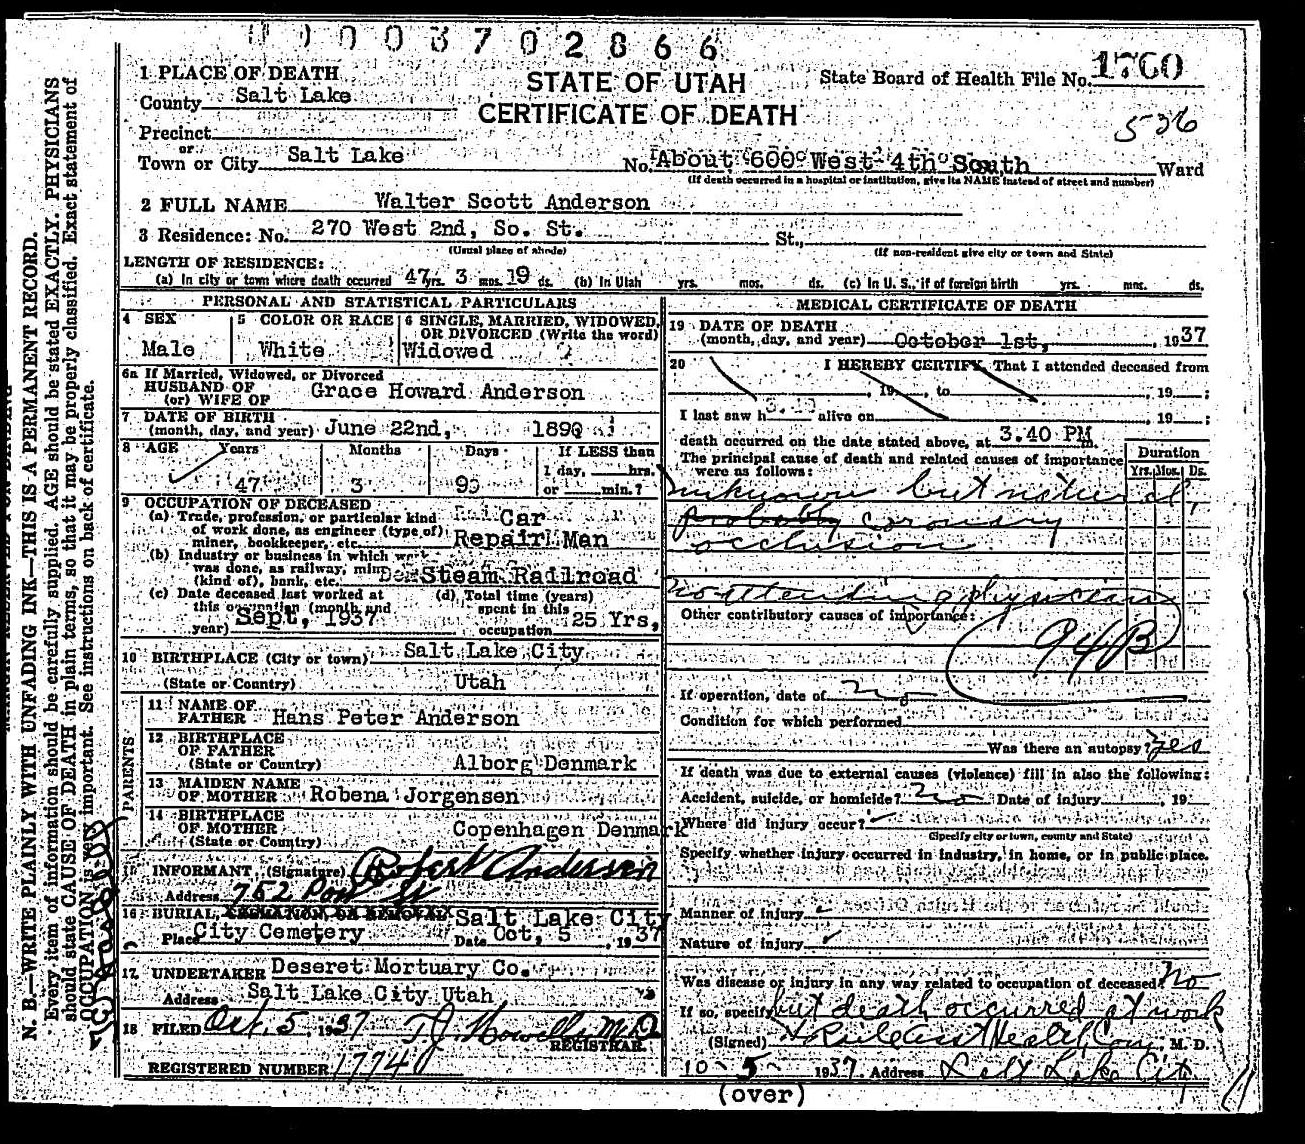 0003702866
1 PLACE OF DEATH
STATE OF UTAH
CERTIFICATE OF DEATH
State Board of Health File No. 1760
536
County Salt Lake
Precinct
or
Town or City Salt Lake No. About 600 West 4th South Ward
(If death occurred in a hospital or institution, give its NAME instead of street and number)
2 FULL NAME Walter Scott Anderson
3 Residence: No. 270 West 2nd, So. St. St.,
(Usual place of abode) (If non-resident give city or town and State)
LENGTH OF RESIDENCE:
(a) In city or town where death occurred 47 yrs. 3 mos. 19 ds. (b) In Utah yrs. mos. ds. (c) In U. S., if of foreign birth yrs. mos. ds.
PERSONAL AND STATISTICAL PARTICULARS
4 SEX
Male
5 COLOR OR RACE
White
6 SINGLE, MARRIED, WIDOWED,
OR DIVORCED (Write the word)
Widowed
6a If Married, Widowed, or Divorced
HUSBAND OF
(or) WIFE OF Grace Howard Anderson
7 DATE OF BIRTH
(month, day, and year) June 22nd, 1890
8 AGE Years Months Days If LESS than
1 day, hrs.
47 3 9 or min.?
9 OCCUPATION OF DECEASED
(a) Trade, profession, or particular kind
of work done, as engineer (type of)
miner, bookkeeper, etc. Car
Repair Man
(b) Industry or business in which work
was done, as railway, mine
(kind of), bank, etc. Steam Railroad
(c) Date deceased last worked at
this occupation (month and
year) Sept, 1937
(d) Total time (years)
spent in this
occupation 25 Yrs,
10 BIRTHPLACE (City or town) Salt Lake City
(State or Country) Utah
PARENTS
11 NAME OF
FATHER Hans Peter Anderson
12 BIRTHPLACE
OF FATHER
(State or Country) Alborg Denmark
13 MAIDEN NAME
OF MOTHER Robena Jorgensen
14 BIRTHPLACE
OF MOTHER
(State or Country) Copenhagen Denmark
INFORMANT (Signature) Robert Anderson
Address 752 St
16 BURIAL, CREMATION OR REMOVAL Salt Lake City
Place City Cemetery Date Oct, 5, 1937
17 UNDERTAKER Deseret Mortuary Co.
Address Salt Lake City Utah
18 FILED Oct. 5 1937 T J Howells M.D.
REGISTRAR
REGISTERED NUMBER 1774
MEDICAL CERTIFICATE OF DEATH
19 DATE OF DEATH
(month, day, and year) October 1st, 1937
20 I HEREBY CERTIFY, That I attended deceased from
, 19 , to , 19 ;
I last saw h alive on , 19 ;
death occurred on the date stated above, at 3.40 PM m.
The principal cause of death and related causes of importance
were as follows:
Duration
Yrs. Mos. Ds.
unknown but natural,
probably coronary
occlusion.
no attending physician
Other contributory causes of importance:
94B
If operation, date of no
Condition for which performed
Was there an autopsy? yes
If death was due to external causes (violence) fill in also the following:
Accident, suicide, or homicide? No Date of injury , 19
Where did injury occur?
(Specify city or town, county and State)
Specify whether injury occurred in industry, in home, or in public place.
Manner of injury
Nature of injury
Was disease or injury in any way related to occupation of deceased? No
If so, specify but death occurred at work
(Signed) Asst Health Com. M. D.
10 - 5 - 1937. Address Salt Lake City
(over)
N. B.—WRITE PLAINLY WITH UNFADING INK—THIS IS A PERMANENT RECORD.
Every item of information should be carefully supplied. AGE should be stated EXACTLY. PHYSICIANS
should state CAUSE OF DEATH in plain terms, so that it may be properly classified. Exact statement of
OCCUPATION is very important. See instructions on back of certificate.